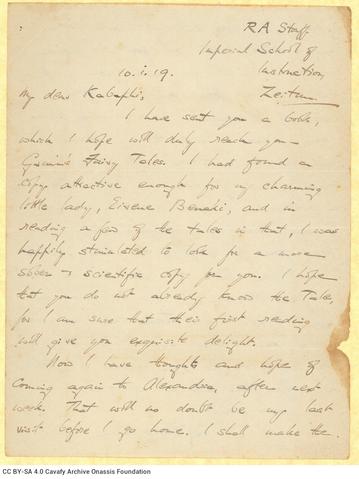 RA Staff.
Imperial School of
10.i.19. Instruction,
My dear Kabaphi, Zeitun
I have sent you a book,
which I hope will duly reach you -
Grimm's Fairy Tales. I had found a
copy attractive enough for my charming
little lady, Eirene Benaki, and in
reading a few of the tales in that, I was
happily stimulated to look for a more
sober & scientific copy for you. I hope
that you do not already know the Tales,
for I am sure that their first reading
will give you exquisite delight.
Now I have thoughts and hope of
coming again to Alexandria, after next
week. That will no doubt be my last
visit before I go home. I shall make the
CC BY-SA 4.0 Cavafy Archive Onassis Foundation